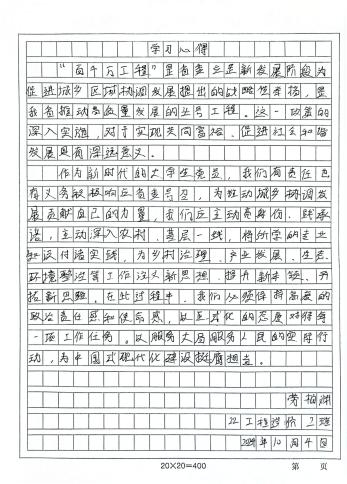 学习心得
“百千万工程”是省委立足新发展阶段为
促进城乡区域协调发展提出的战略性举措，是
我省推动高质量发展的头号工程。这一政策的
深入实施，对于实现共同富裕、促进社会和谐
发展具有深远意义。
作为新时代的大学生党员，我们有责任也
有义务积极响应省委号召，为推动城乡协调发
展贡献自己的力量，我们应主动亮身份、践承
诺，主动深入农村、基层一线，将所学的专业
知识付诸实践，为乡村治理、产业发展、生态
环境整治等工作注入新思想、提升新本领、开
拓新思路，在此过程中，我们必须保持高度的
政治责任感和使命感，以更式化的态度对待每
一项工作任务。以服务大局服务人民的实际行
动，为中国式现代化建设挺膺担当。
劳
22工程造价
10月4日
20×20=400
第 页